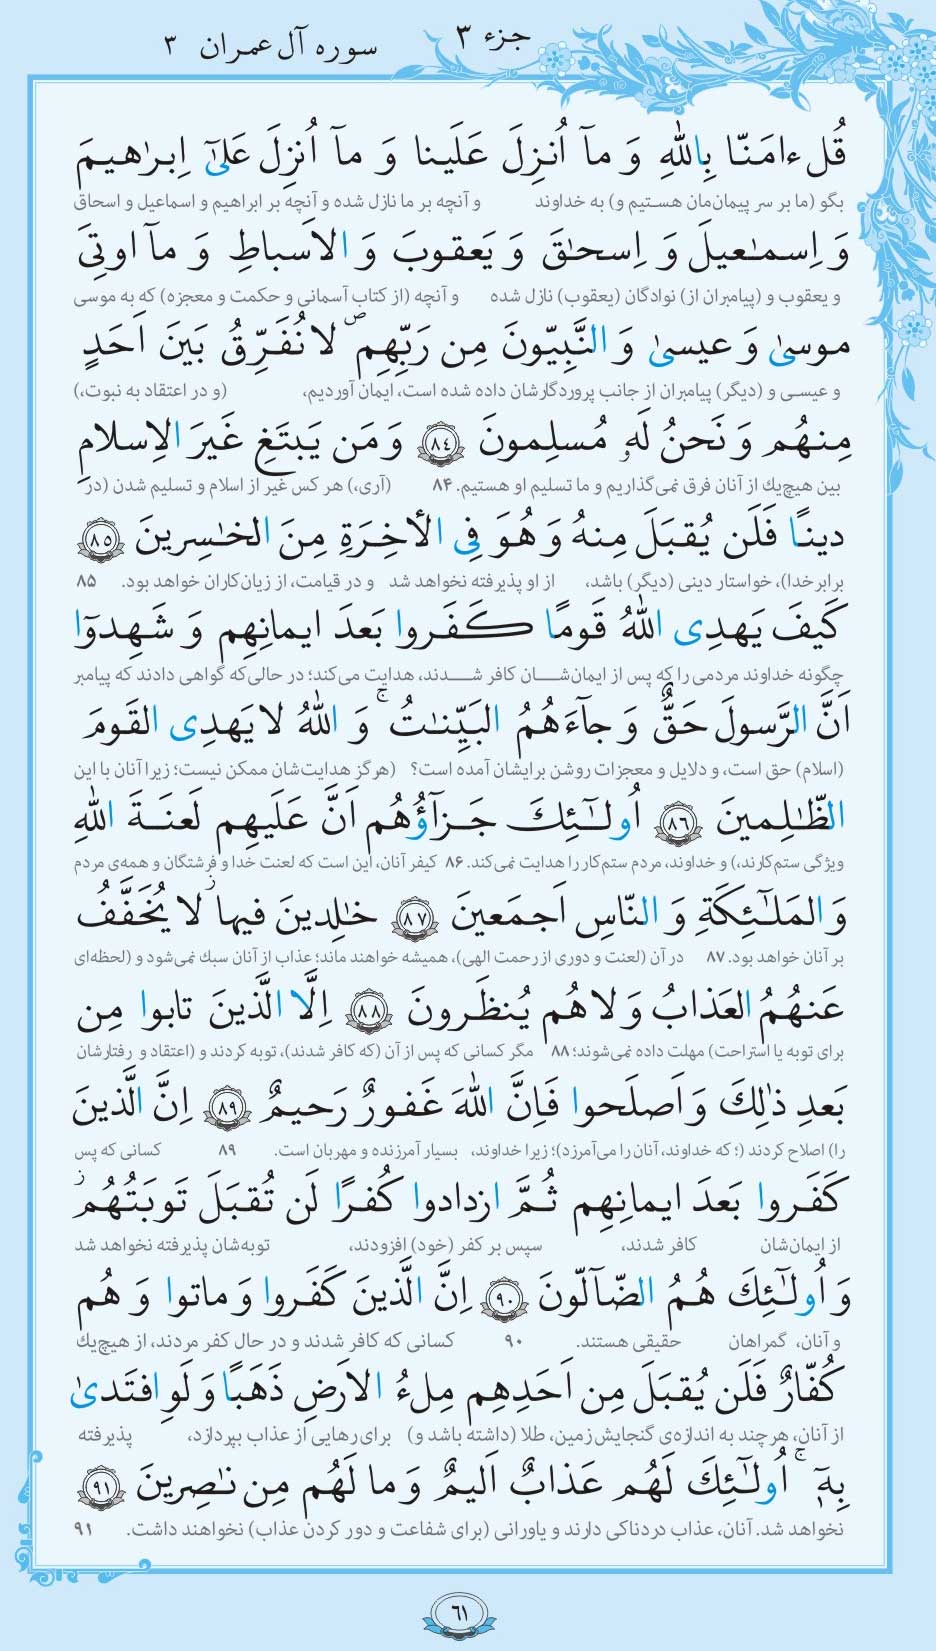 جزء ۳
سوره آل عمران ۳
قُل ءامَنّا بِاللهِ وَ مآ اُنزِلَ عَلَینا وَ مآ اُنزِلَ عَلىٰٓ اِبرٰهیمَ
بگو (ما بر سر پیمان‌مان هستیم و) به خداوند و آنچه بر ما نازل شده و آنچه بر ابراهیم و اسماعیل و اسحاق
وَ اِسمـٰعیلَ وَ اِسحـٰقَ وَ یَعقوبَ وَ الاَسباطِ وَ مآ اوتِیَ
و یعقوب و (پیامبران از) نوادگان (یعقوب) نازل شده و آنچه (از کتاب آسمانی و حکمت و معجزه) که به موسی
موسىٰ وَ عیسىٰ وَ النَّبِیّونَ مِن رَبِّهِم ۖ لا نُفَرِّقُ بَینَ اَحَدٍ
و عیسی و (دیگر) پیامبران از جانب پروردگارشان داده شده است، ایمان آوردیم، (و در اعتقاد به نبوت،)
مِنهُم وَ نَحنُ لَهٗ مُسلِمونَ ﴿۸۴﴾ وَ مَن یَبتَغِ غَیرَ الاِسلامِ
بین هیچ‌یك از آنان فرق نمی‌گذاریم و ما تسلیم او هستیم. ۸۴ (آری،) هر کس غیر از اسلام و تسلیم شدن (در
دینًا فَلَن یُقبَلَ مِنهُ وَ هُوَ فِی الأخِرَةِ مِنَ الخٰسِرینَ ﴿۸۵﴾
برابر خدا)، خواستار دینی (دیگر) باشد، از او پذیرفته نخواهد شد و در قیامت، از زیان‌کاران خواهد بود. ۸۵
کَیفَ یَهدِی اللهُ قَومًا کَفَروا بَعدَ ایمانِهِم وَ شَهِدوٓا
چگونه خداوند مردمی را که پس از ایمان‌شان کافر شدند، هدایت می‌کند؛ در حالی‌که گواهی دادند که پیامبر
اَنَّ الرَّسولَ حَقٌّ وَ جآءَهُمُ البَیِّنـٰتُ ۚ وَ اللهُ لا یَهدِی القَومَ
(اسلام) حق است، و دلایل و معجزات روشن برایشان آمده است؟ (هرگز هدایت‌شان ممکن نیست؛ زیرا آنان با این
الظّـٰلِمینَ ﴿۸۶﴾ اُولـٰٓئِكَ جَزآؤُهُم اَنَّ عَلَیهِم لَعنَةَ اللهِ
ویژگی ستم‌کارند،) و خداوند، مردم ستم‌کار را هدایت نمی‌کند. ۸۶ کیفر آنان، این است که لعنت خدا و فرشتگان و همه‌ی مردم
وَ المَلـٰٓئِکَةِ وَ النّاسِ اَجمَعینَ ﴿۸۷﴾ خـٰلِدینَ فیها ۖ لا یُخَفَّفُ
بر آنان خواهد بود. ۸۷ در آن (لعنت و دوری از رحمت الهی)، همیشه خواهند ماند؛ عذاب از آنان سبك نمی‌شود و (لحظه‌ای
عَنهُمُ العَذابُ وَ لا هُم یُنظَرونَ ﴿۸۸﴾ اِلَّا الَّذینَ تابوا مِن
برای توبه یا استراحت) مهلت داده نمی‌شوند؛ ۸۸ مگر کسانی که پس از آن (که کافر شدند)، توبه کردند و (اعتقاد و رفتارشان
بَعدِ ذٰلِكَ وَ اَصلَحوا فَاِنَّ اللهَ غَفورٌ رَحیمٌ ﴿۸۹﴾ اِنَّ الَّذینَ
را) اصلاح کردند (؛ که خداوند، آنان را می‌آمرزد)؛ زیرا خداوند، بسیار آمرزنده و مهربان است. ۸۹ کسانی که پس
کَفَروا بَعدَ ایمانِهِم ثُمَّ ازدادوا کُفرًا لَن تُقبَلَ تَوبَتُهُم
از ایمان‌شان کافر شدند، سپس بر کفر (خود) افزودند، توبه‌شان پذیرفته نخواهد شد
وَ اُولـٰٓئِكَ هُمُ الضّآلّونَ ﴿۹۰﴾ اِنَّ الَّذینَ کَفَروا وَ ماتوا وَ هُم
و آنان، گمراهان حقیقی هستند. ۹۰ کسانی که کافر شدند و در حال کفر مردند، از هیچ‌یك
کُفّارٌ فَلَن یُقبَلَ مِن اَحَدِهِم مِلءُ الاَرضِ ذَهَبًا وَ لَوِ افتَدىٰ
از آنان، هر چند به اندازه‌ی گنجایش زمین، طلا (داشته باشد و) برای رهایی از عذاب بپردازد، پذیرفته
بِهٖٓ ۚ اُولـٰٓئِكَ لَهُم عَذابٌ اَلیمٌ وَ ما لَهُم مِن نـٰصِرینَ ﴿۹۱﴾
نخواهد شد. آنان، عذاب دردناکی دارند و یاورانی (برای شفاعت و دور کردن عذاب) نخواهند داشت. ۹۱
۶۱